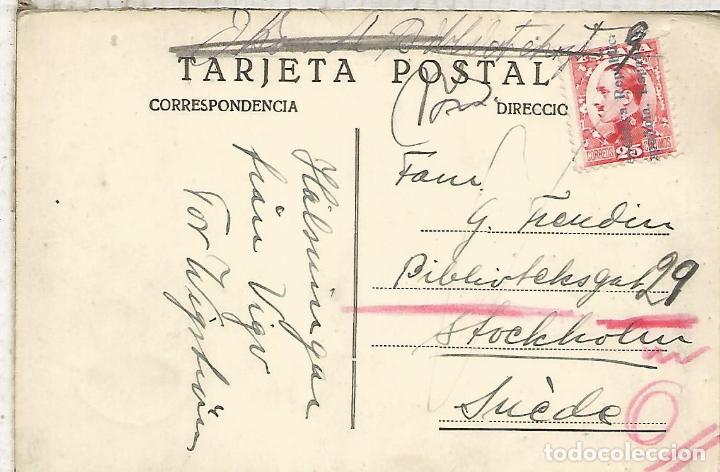 TARJETA POSTAL
CORRESPONDENCIA
DIRECCIO
ESPAÑA
CORREOS 25 CENTIMOS
Hälsningar
från Vigo
Tor Wigström
Fam.
G. Trendin
Biblioteksgat. 29
Stockholm
Suède
todocoleccion.net